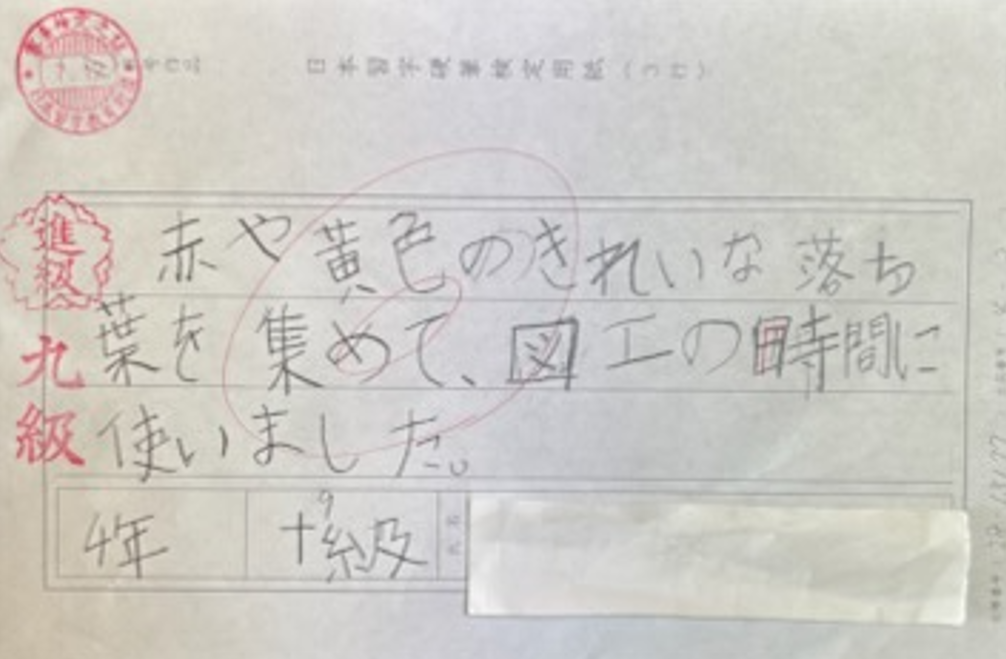 日本習字硬筆検定用紙
進級
九級
赤や黄色のきれいな落ち
葉を集めて、図工の時間に
使いました。
4年
十級
9